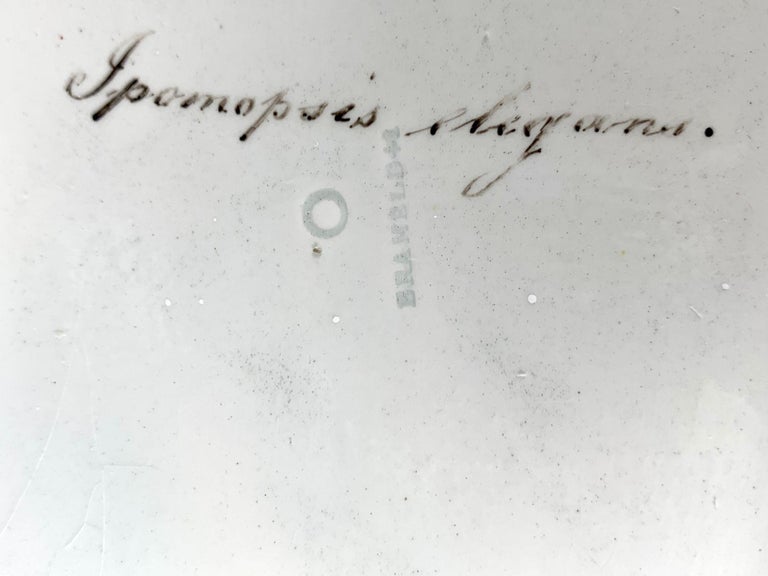 Ipomopsis elegans.
O
BRAMELD+1